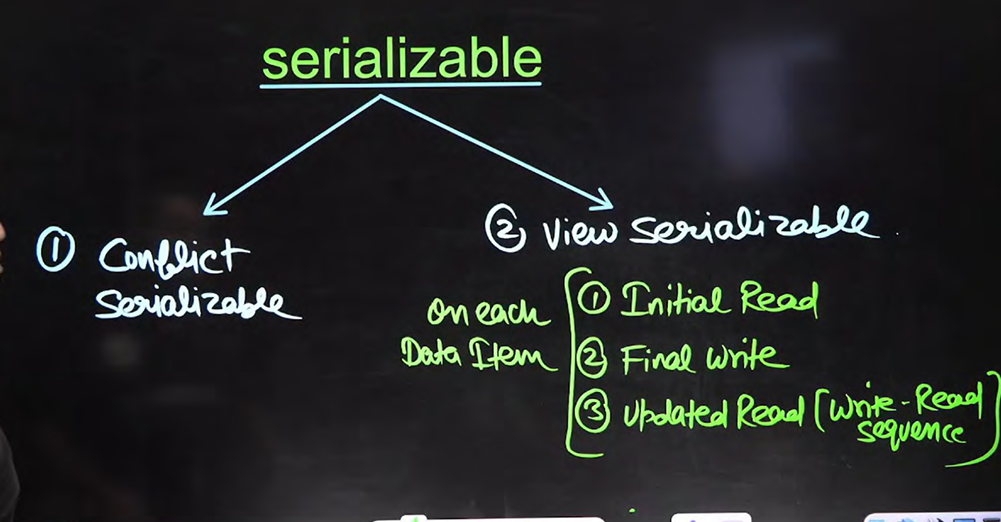 serializable
① Conflict
serializable
② View serializable.
on each
Data Item
① Initial Read
② Final write
③ Updated Read (write-Read
sequence)